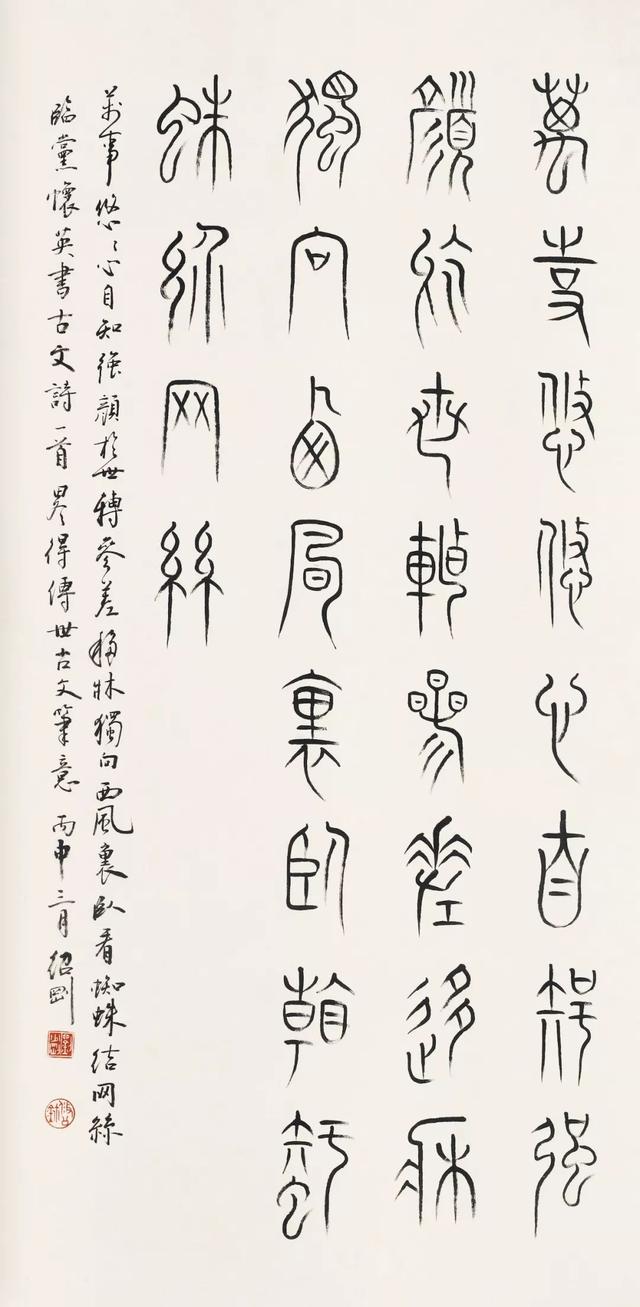 萬事悠悠心自知強
顏於世轉參差移牀
獨向西風裏臥看蜘
蛛結网絲
萬事悠〻心自知強顏於世轉參差移牀獨向西風裏臥看蜘蛛結网絲
臨黨懷英書古文詩一首畧得傳世古文筆意 丙申三月 紹剛